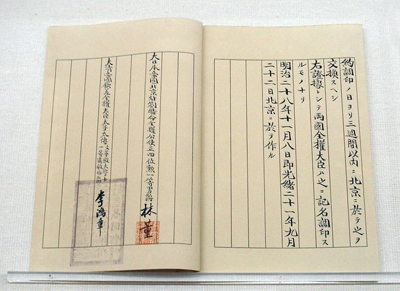 約調印ノ日ヨリ三週間以内ニ北京ニ於テ之ヲ
交換スヘシ
右證據トシテ兩國全權大臣ハ之ニ記名調印ス
ルモノナリ
明治二十八年十一月八日即光緒二十一年九月
二十二日北京ニ於テ作ル
大日本帝國北京駐劄特命全權公使正四位勳一等男爵林董
大清帝國欽差全權大臣 李鴻章